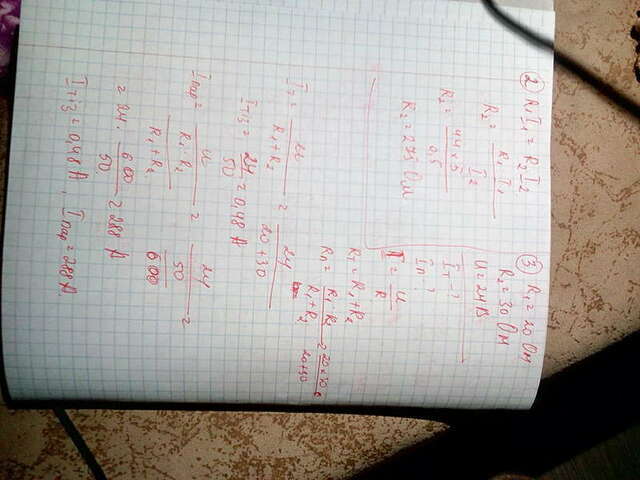 ② R₁I₁ = R₂I₂
R₂ = R₁I₁ / I₂
R₂ = 44 × 5 / 0,5
R₂ = 275 Ом
③ R₁ = 20 Ом
R₂ = 30 Ом
U = 24 В
I - ?
I - ?
I = U / R
R = R₁ + R₂
R = R₁ · R₂ / R₁ + R₂ = 20 × 30 / 20 + 30
I = U / R₁ + R₂ = 24 / 20 + 30
I = 24 / 50 = 0,48 А
I пар = U / R₁ · R₂ / R₁ + R₂ = 24 / 50 / 600 =
= 24 · 600 / 50 = 288 А
I = 0,48 А , I пар = 288 А